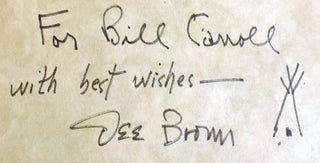 For Bill Carroll
with best wishes—
Dee Brown